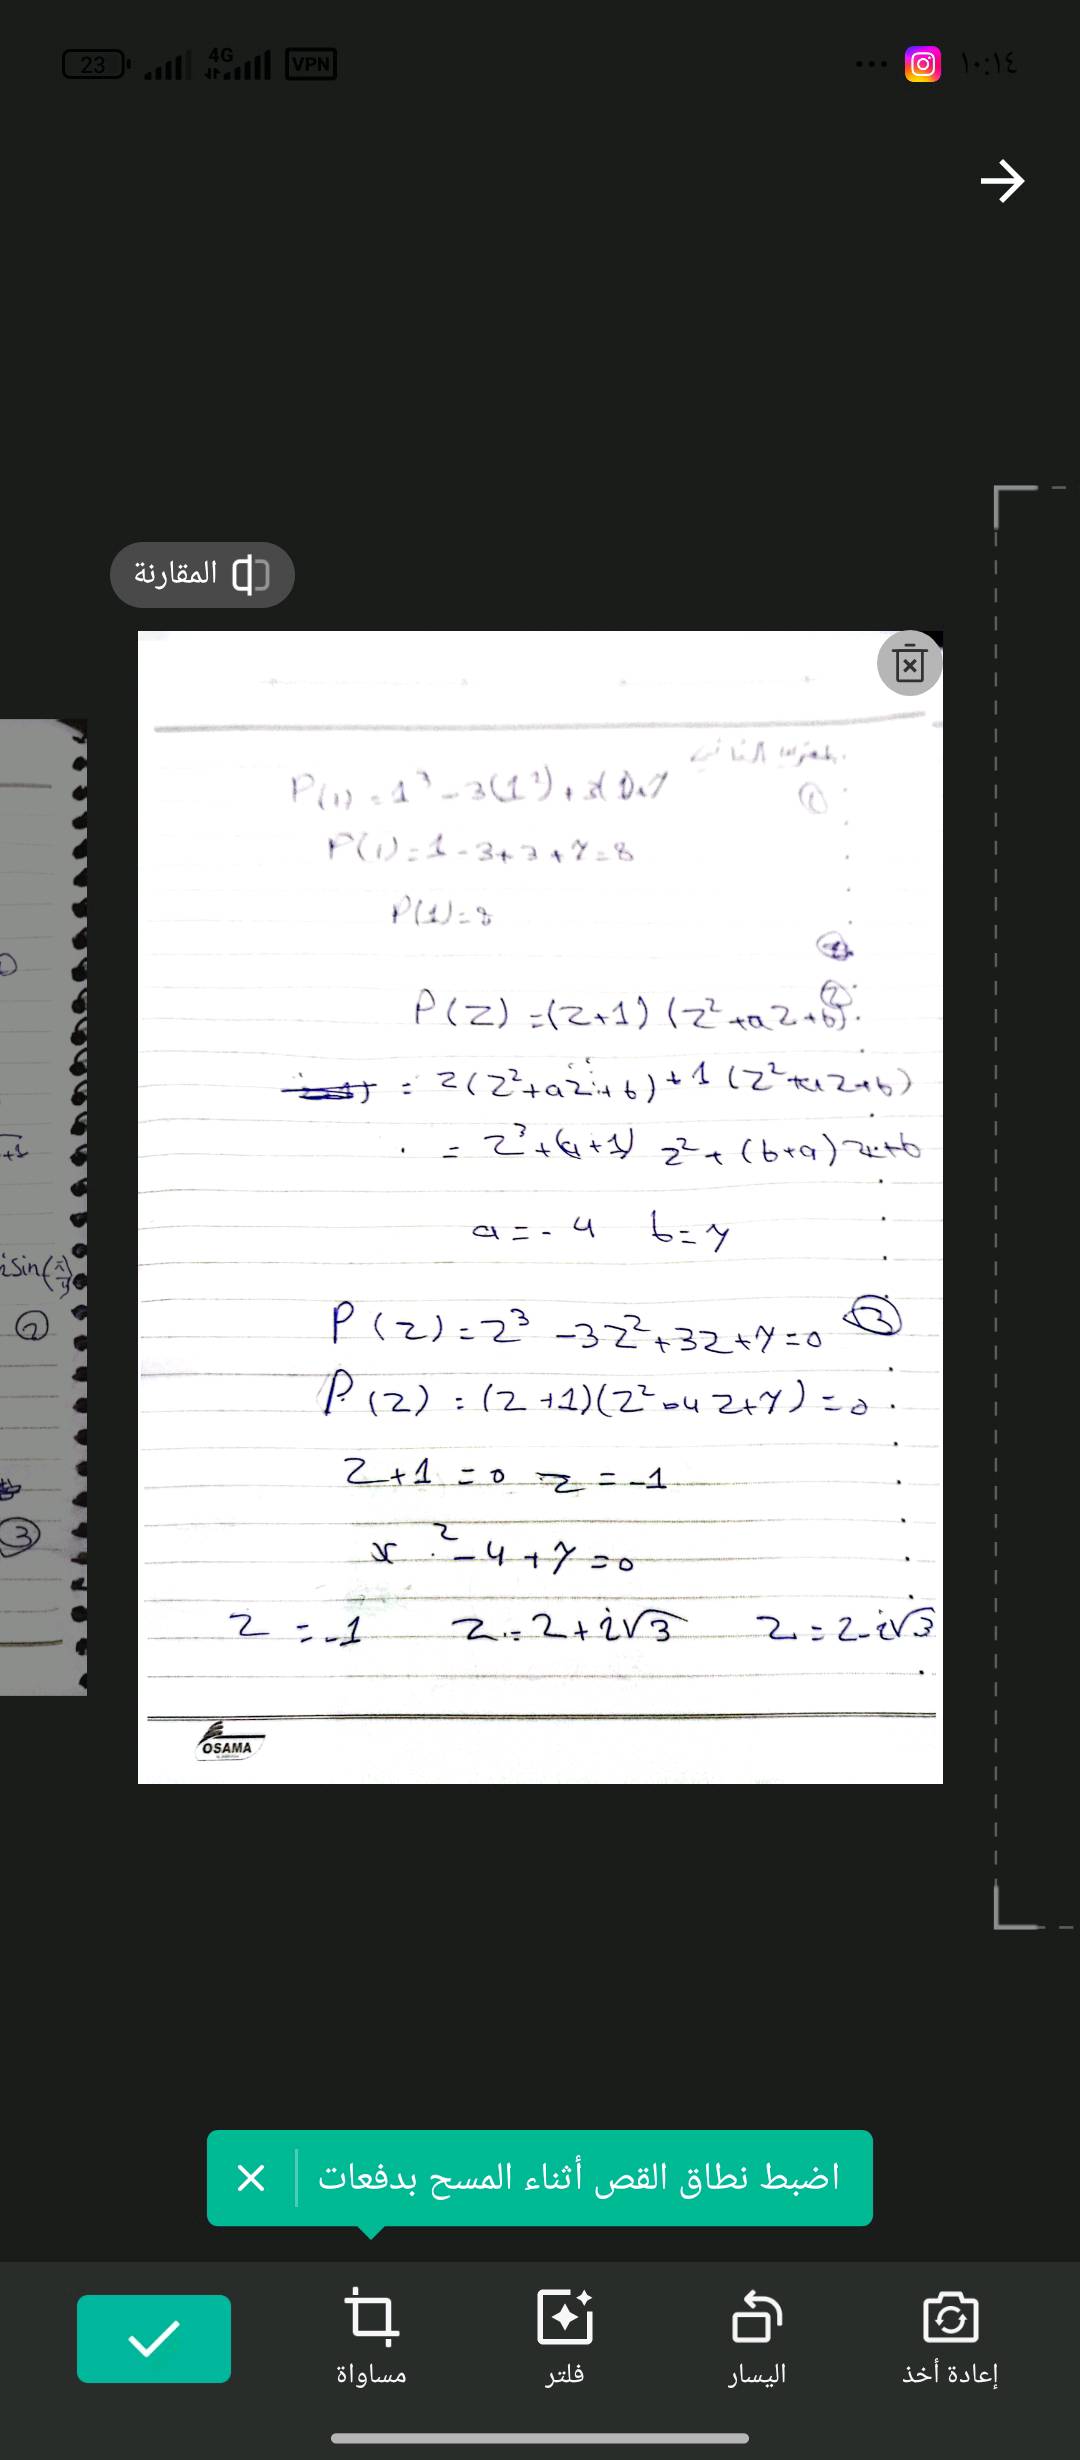 23 4G VPN ... ١٠:١٤
المقارنة
التمرين الثاني
①
P(1) = 1³ - 3(1²) + 3(1)+7
P(1) = 1 - 3 + 3 + 7 = 8
P(1) = 8
②
P(z) = (z+1) (z² + az + b)
= z(z² + az + b) + 1 (z² + az + b)
= z³ + (a+1) z² + (b+a) z + b
a = - 4 b = 7
P(z) = z³ - 3z² + 3z + 7 = 0 ③
P(z) = (z+1)(z² - 4z + 7) = 0
z+1 = 0 z = -1
x² - 4 + 7 = 0
z = -1 z = 2 + i√3 z = 2 - i√3
OSAMA
+1
isin(π/
②
③
اضبط نطاق القص أثناء المسح بدفعات
إعادة أخذ
اليسار
فلتر
مساواة